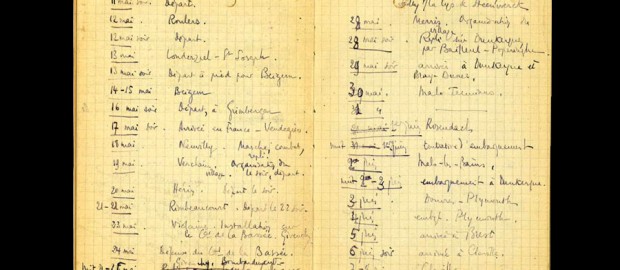 11 mai soir Départ.
12 mai Roulers
12 mai soir Départ.
13 mai Londerzeel - St Joseph
13 mai soir Départ à pied pour Beigem
14-15 mai Beigem
16 mai soir Départ, à Grimbergen
17 mai soir. Arrivée en France -
18 mai Neuville - Marche, combat, repli
19 mai Verchain. Organisation du village. le soir, départ.
20 mai Hérin. Départ le soir.
21-22 mai Rimbeaucourt. Départ le 22 soir
23 mai Violaine. Installation sur le Cal de la Bassée. Givenchy
24 mai Défense du Cal de la Bassée.
Bombardement
28 mai Merris. Organisation du village
28 mai soir Dunkerque par Bailleul - Poperinghe
29 mai soir arrivée à Dunkerque et Bray-Dunes.
30 mai. Malo Terminus.
31
1er juin Rosendael
1er juin embarquement
2 juin Malo-les-Bains,
nuit 2-3 juin embarquement à Dunkerque.
3 juin Douvres - Plymouth
4 juin embqt. Plymouth.
5 juin arrivée à Brest
6 juin soir arrivée à